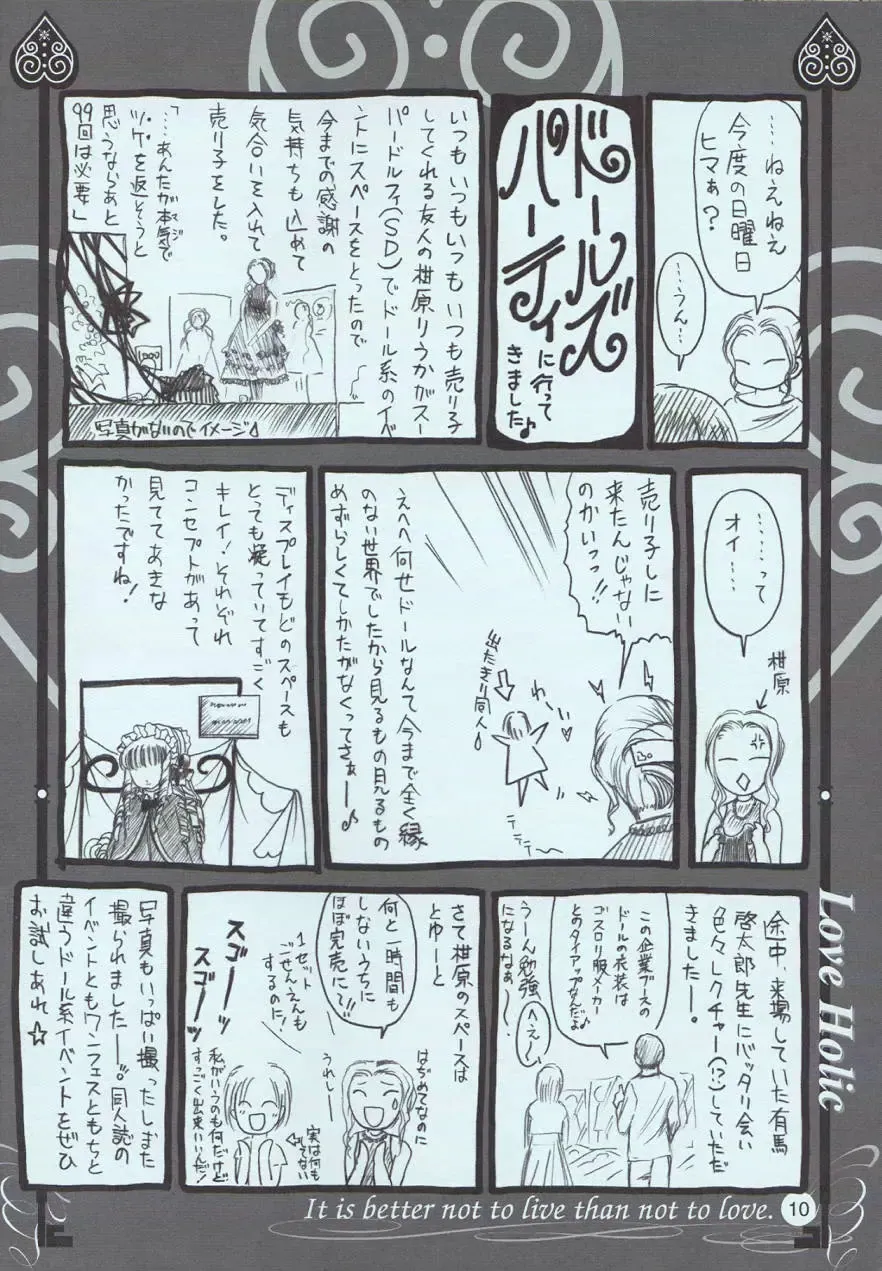 ……ねえねえ
今度の日曜日
ヒマぁ？
……うん…
ドールズ
パーティ
に行って
きました♪
いつもいつもいつもいつも売り子
してくれる友人の柑原りうかがスー
パードルフィ(SD)でドール系のイベ
ントにスペースをとったので
今までの感謝の
気持ちも込めて
気合いを入れて
売り子をした。
「……あんたが本気で
マジ
ツケを返そうと
思うならあと
99回は必要」
写真がないのでイメージ♪
………って
オイ……
柑原
売り子しに
来たんじゃない
のかいっっ!!
出たきり同人♪
わーい
テテテ…
えへへ何せドールなんて今まで全く縁
のない世界でしたから見るもの見るもの
めずらしくてしかたがなくってさぁー♪
ディスプレイもどのスペースも
とっても凝っていてすごく
キレイ！それぞれ
コンセプトがあって
見ててあきな
かったですね！
途中、来場していた有馬
啓太郎先生にバッタリ会い
色々レクチャー(!?)していただ
きましたー。
この企業ブースの
ドールの衣装は
ゴスロリ服メーカー
とのタイアップなんだよ♪
うーん勉強
になるなぁ〜
へえ〜
さて柑原のスペースは
とゆーと
はじめてなのに
何と一時間も
しないうちに
ほぼ完売に!!
うれしー
1セット
ごせんえんも
するのに！
スゴーッ
スゴーッ
私がいうのも何だけど
すっごく出来いいんだ！
実は何も
してない
写真もいっぱい撮ったしまた
撮られましたー。同人誌の
イベントともワンフェスともちと
違うドール系イベントをぜひ
お試しあれ☆
Love Holic
It is better not to live than not to love.
10